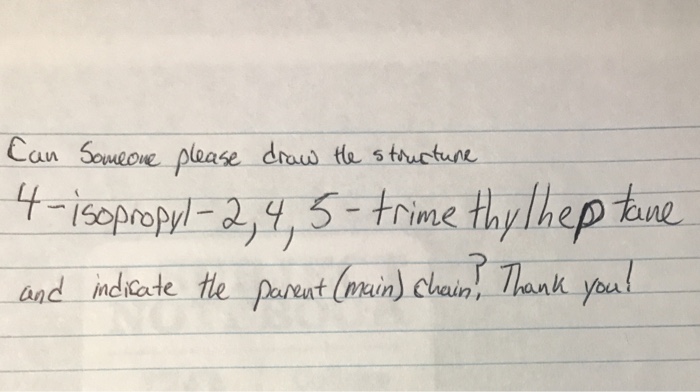 Can Someone please draw the structure
4-isopropyl-2,4,5-trimethylheptane
and indicate the parent (main) chain? Thank you!